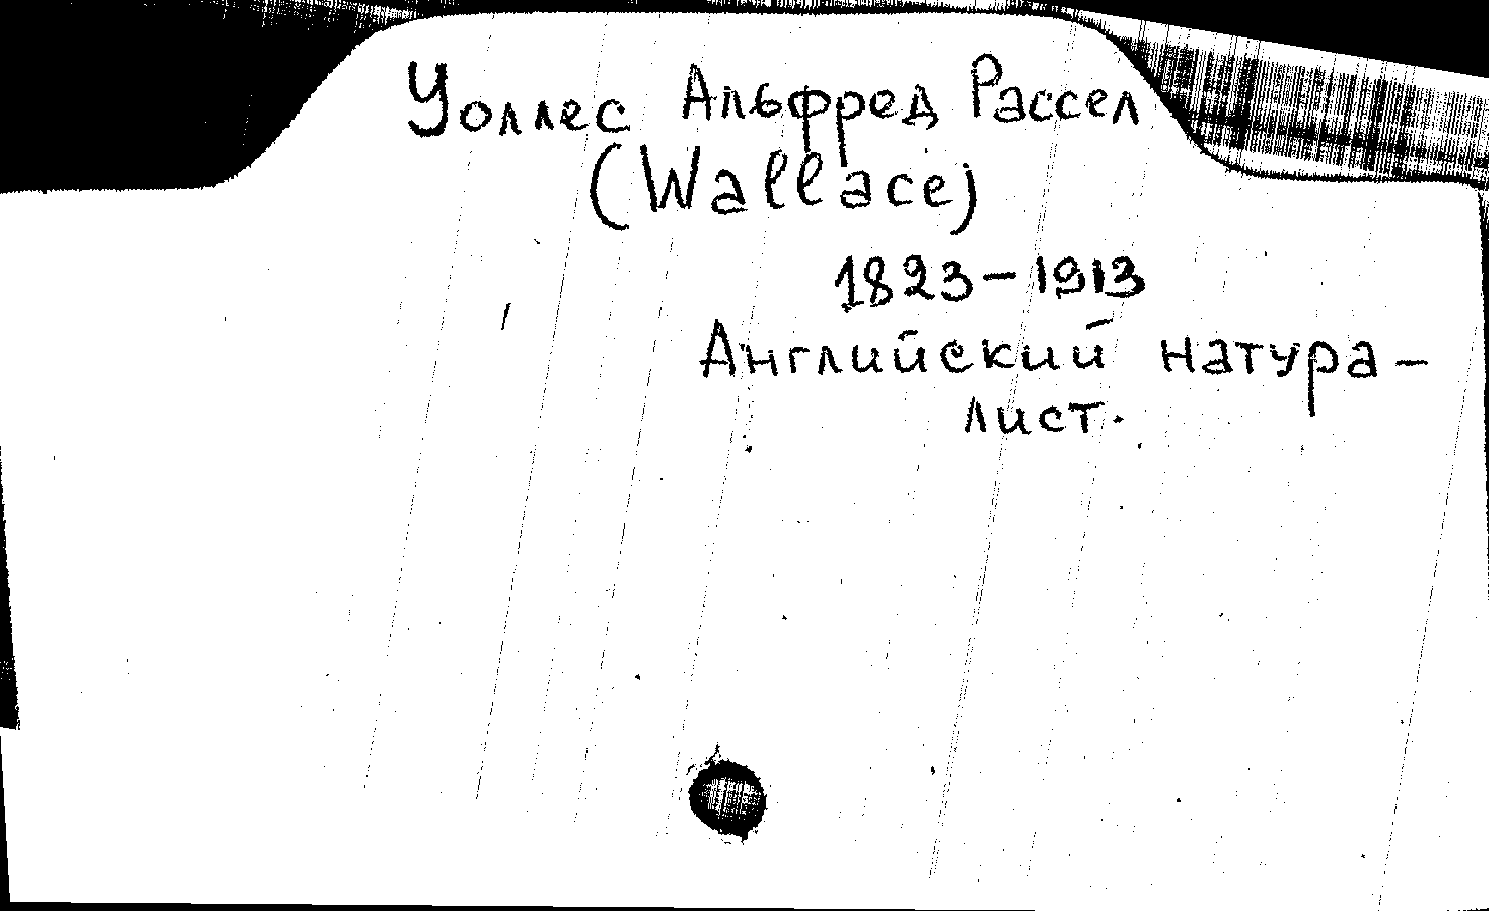 Уоллес Альфред Рассел
(Wallace)
1823-1913
Английский натура-
лист.